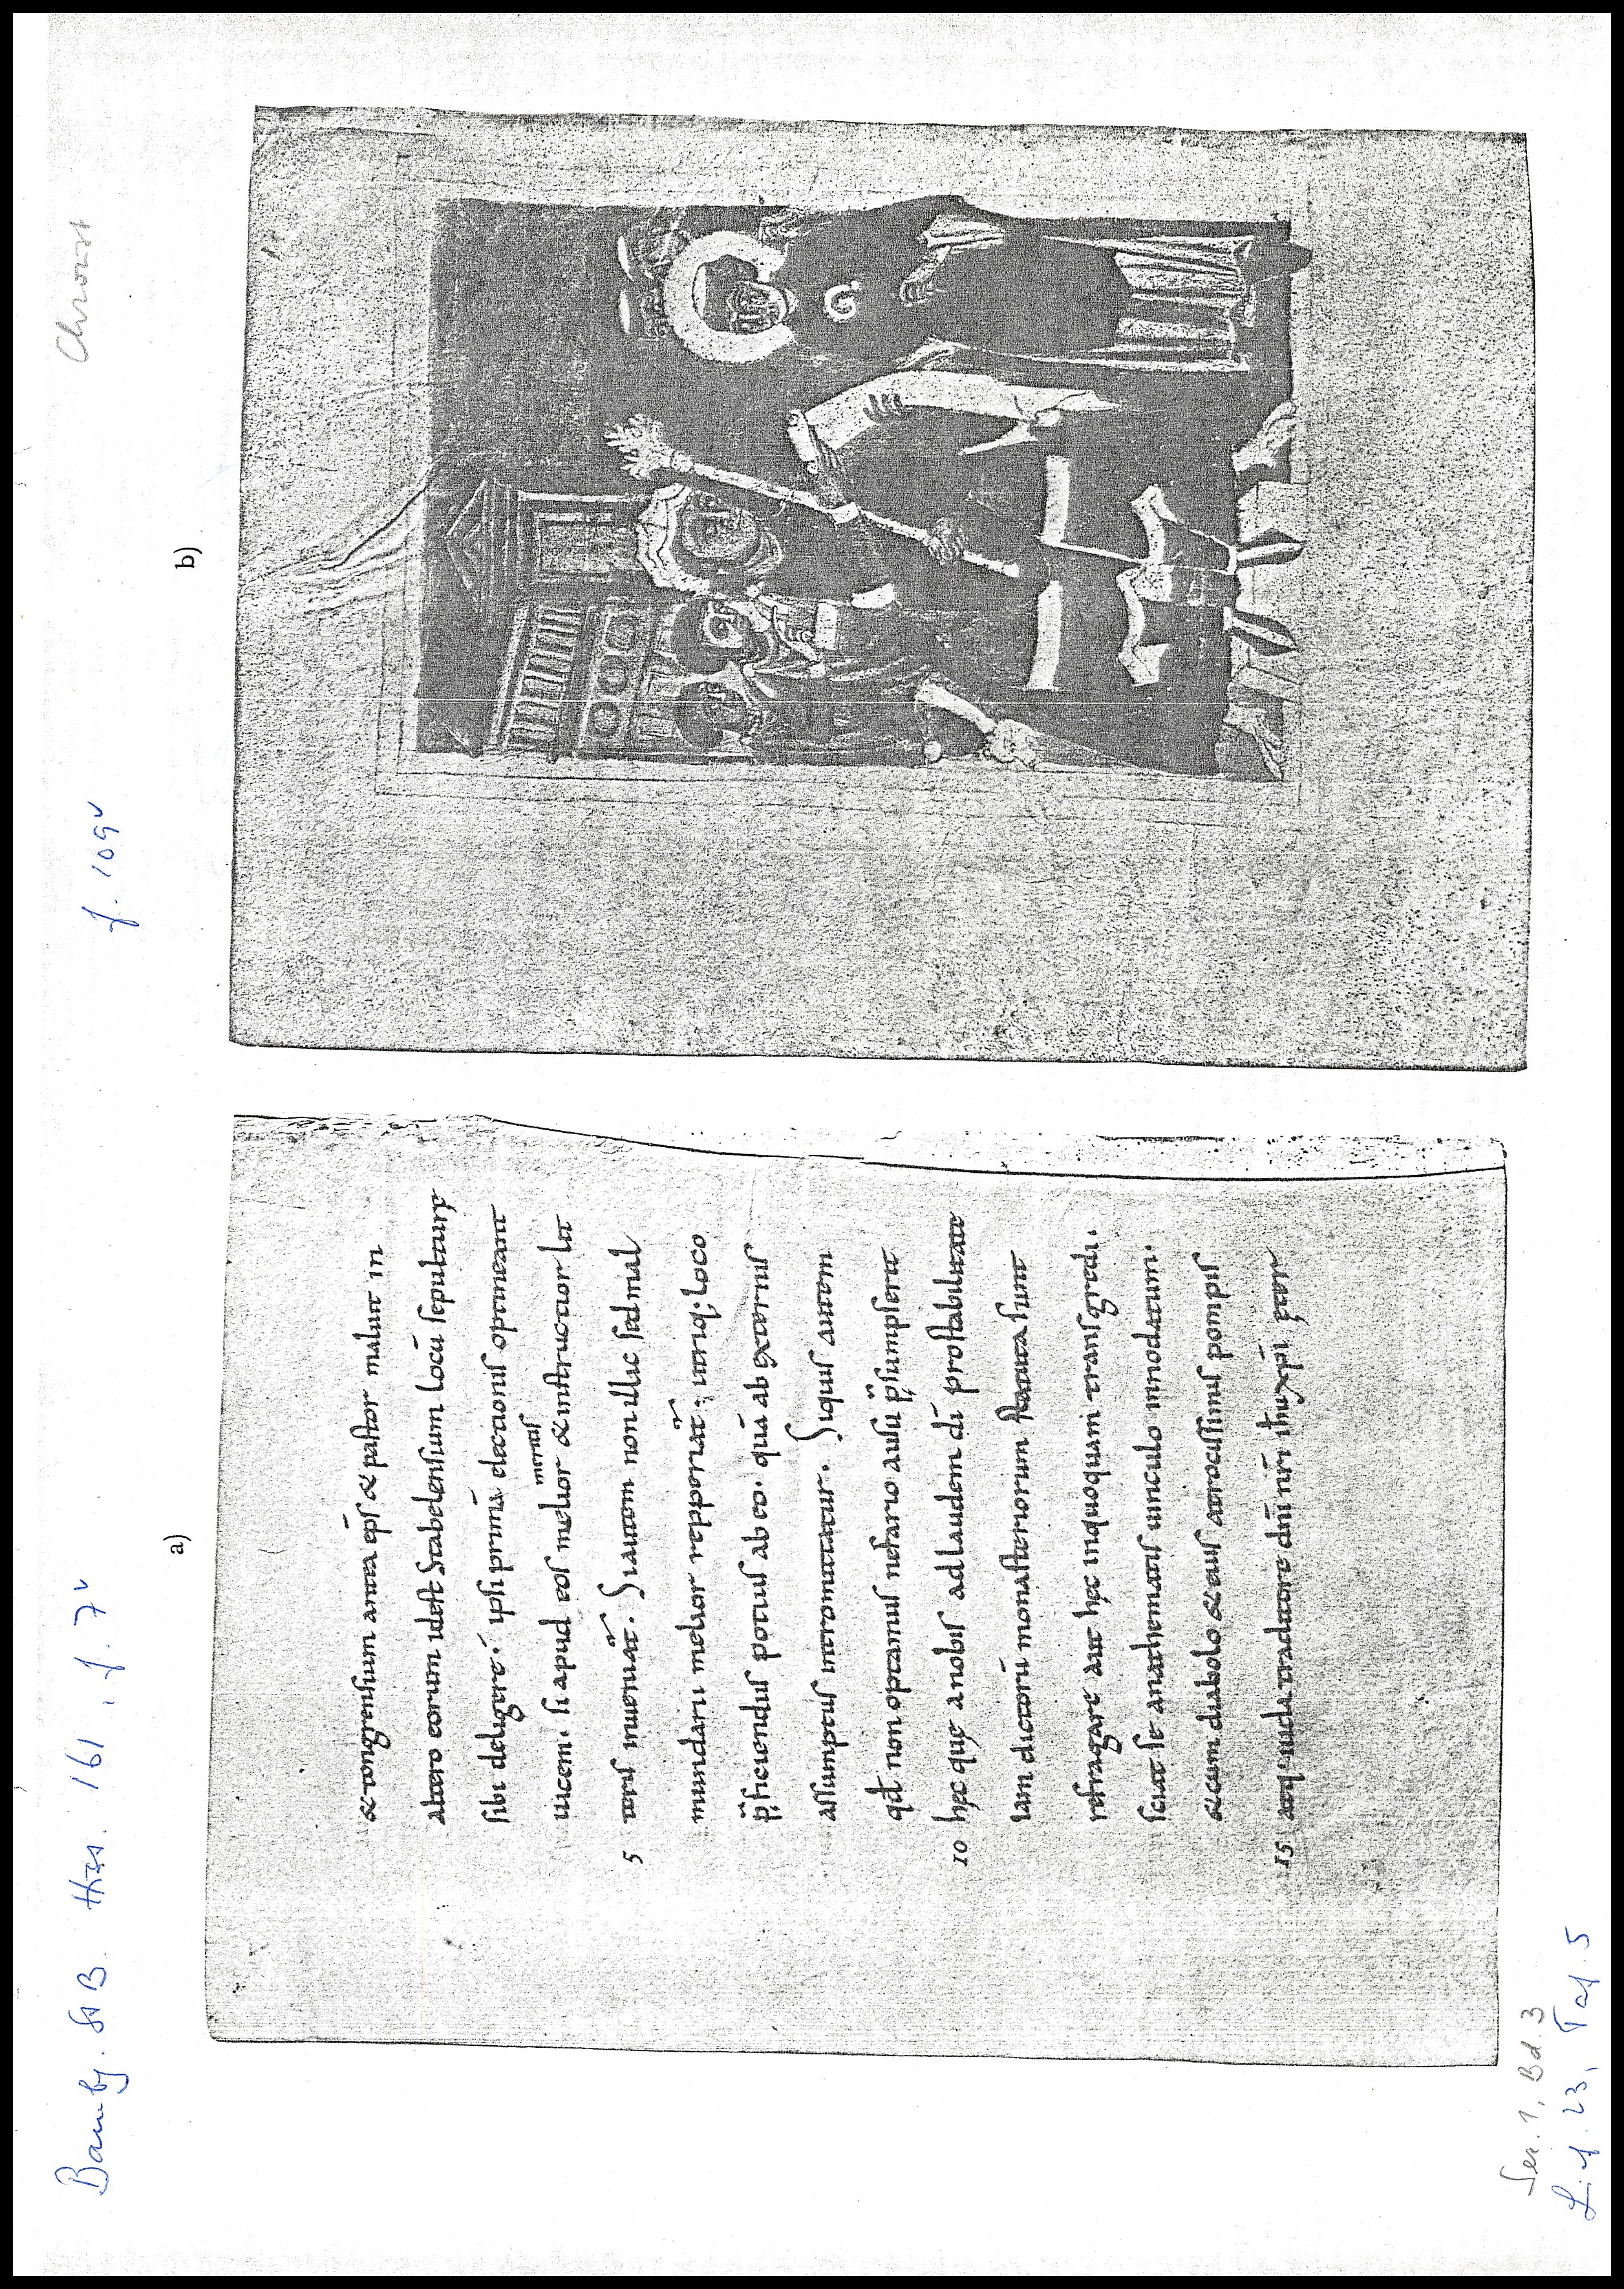 Bamberg. StB. theol. 161, f. 7v
f. 109v
Chroust
a)
& tongrensium antea ep̄s & pastor maluit in
altero eorum idest Stabelensium locū sepulturę
sibi deligere. ipsi primā electionis optineant
uicem. si apud eos melior & instructior lit
meritis
5 teris inueniat̄. Siautem non illic sed mal
mundarii melior repperiat̄; utriq; loco
p̄ficiendus potius ab eo. quā ab externis
assumptus intromittatur. Siquis autem
qd̄ non optamus nefario ausu p̄sumpserit
10 hęc quę anobis adlaudem dī prostabilitate
iam dictorū monasteriorum statuta sunt
refragare aut hęc inquoquam transgredi.
sciat se anathematis uinculo innodatum.
&cum diabolo & eius atrocissimis pompis
15 &cum iuda traditore dn̄i nr̄i ihu xp̄i
b)
G.
Ser. 1, Bd. 3
Lief. 23, Taf. 5